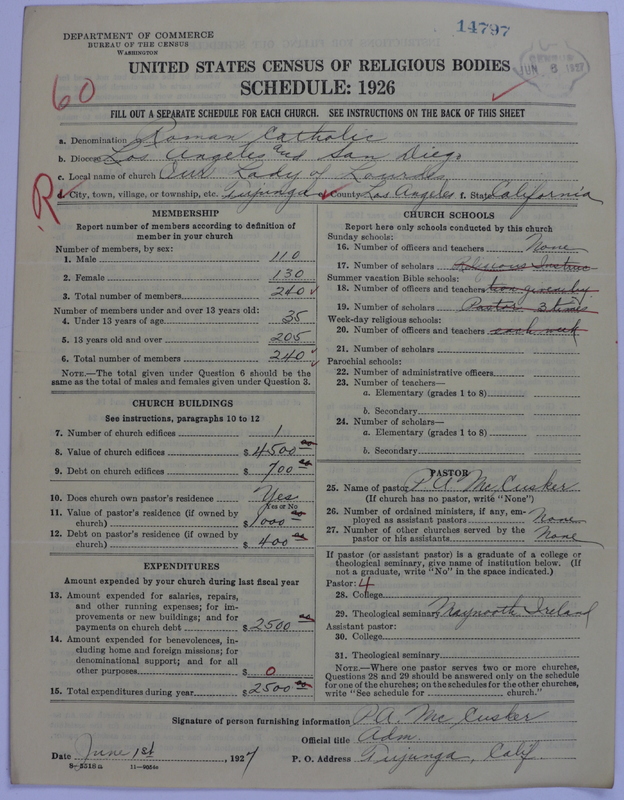 14797
DEPARTMENT OF COMMERCE
BUREAU OF THE CENSUS
WASHINGTON
CENSUS
JUN 8 1927
UNITED STATES CENSUS OF RELIGIOUS BODIES
SCHEDULE: 1926
60
FILL OUT A SEPARATE SCHEDULE FOR EACH CHURCH. SEE INSTRUCTIONS ON THE BACK OF THIS SHEET
a. Denomination Roman Catholic
b. Diocese Los Angeles and San Diego
c. Local name of church Our Lady of Lourdes
R
d. City, town, village, or township, etc. Tujunga e. County Los Angeles f. State California
MEMBERSHIP
Report number of members according to definition of member in your church
Number of members, by sex:
1. Male 110
2. Female 130
3. Total number of members 240
Number of members under and over 13 years old:
4. Under 13 years of age 35
5. 13 years old and over 205
6. Total number of members 240
NOTE.—The total given under Question 6 should be the same as the total of males and females given under Question 3.
CHURCH BUILDINGS
See instructions, paragraphs 10 to 12
7. Number of church edifices 1
8. Value of church edifices $ 4500 00
9. Debt on church edifices $ 700 00
10. Does church own pastor's residence Yes
Yes or No
11. Value of pastor's residence (if owned by church) $ 1000 00
12. Debt on pastor's residence (if owned by church) $ 400 00
EXPENDITURES
Amount expended by your church during last fiscal year
13. Amount expended for salaries, repairs, and other running expenses; for improvements or new buildings; and for payments on church debt $ 2500 00
14. Amount expended for benevolences, including home and foreign missions; for denominational support; and for all other purposes $ 0
15. Total expenditures during year $ 2500 00
CHURCH SCHOOLS
Report here only schools conducted by this church
Sunday schools:
16. Number of officers and teachers None
17. Number of scholars Religious Instruc
Summer vacation Bible schools:
18. Number of officers and teachers tion given by
19. Number of scholars Pastor 3 times
Week-day religious schools:
20. Number of officers and teachers each week
21. Number of scholars
Parochial schools:
22. Number of administrative officers
23. Number of teachers—
a. Elementary (grades 1 to 8)
b. Secondary
24. Number of scholars—
a. Elementary (grades 1 to 8)
b. Secondary
PASTOR
25. Name of pastor P. A. McCusker
(If church has no pastor, write "None")
26. Number of ordained ministers, if any, employed as assistant pastors None
27. Number of other churches served by the pastor or his assistants None
If pastor (or assistant pastor) is a graduate of a college or theological seminary, give name of institution below. (If not a graduate, write "No" in the space indicated.)
Pastor: 4
28. College
29. Theological seminary Maynooth Ireland
Assistant pastor:
30. College
31. Theological seminary
NOTE.—Where one pastor serves two or more churches, Questions 28 and 29 should be answered only on the schedule for one of the churches; on the schedules for the other churches, write "See schedule for church."
Signature of person furnishing information P. A. McCusker
Official title Adm.
Date June 1st, 1927 P. O. Address Tujunga, Calif
8-5518a 11-9054